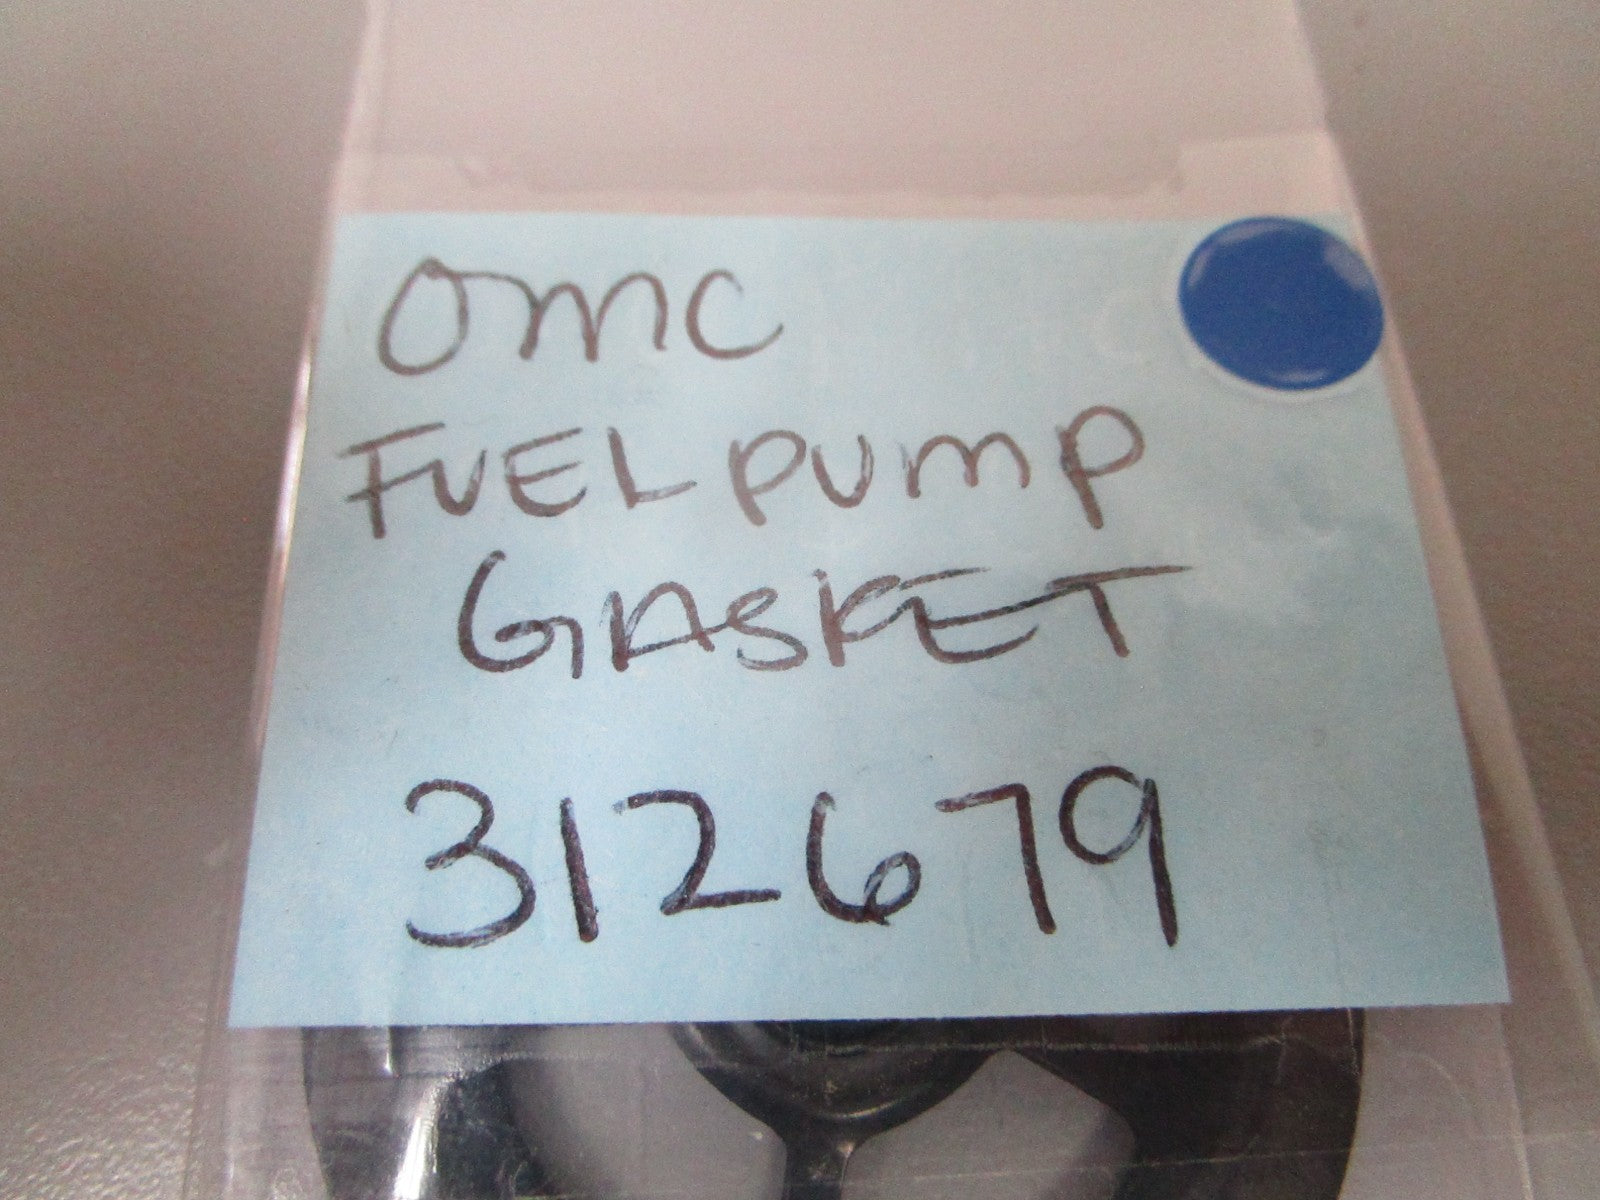 OMC
FUEL PUMP
GASKET
312679